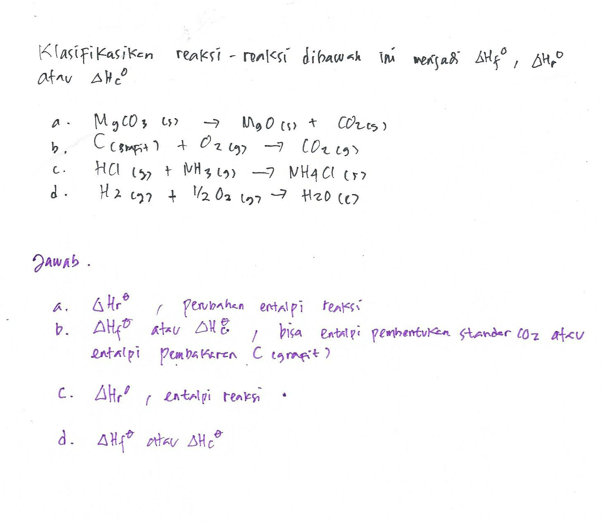 Klasifikasikan reaksi - reaksi dibawah ini menjadi ΔHf°, ΔHr°
atau ΔHc°
a. MgCO3 (s) → MgO (s) + CO2 (g)
b. C (grafit) + O2 (g) → CO2 (g)
c. HCl (g) + NH3 (g) → NH4Cl (s)
d. H2 (g) + 1/2 O2 (g) → H2O (l)
Jawab.
a. ΔHr°, perubahan entalpi reaksi
b. ΔHf° atau ΔHc°, bisa entalpi pembentukan standar CO2 atau
entalpi pembakaran C (grafit)
c. ΔHr°, entalpi reaksi.
d. ΔHf° atau ΔHc°